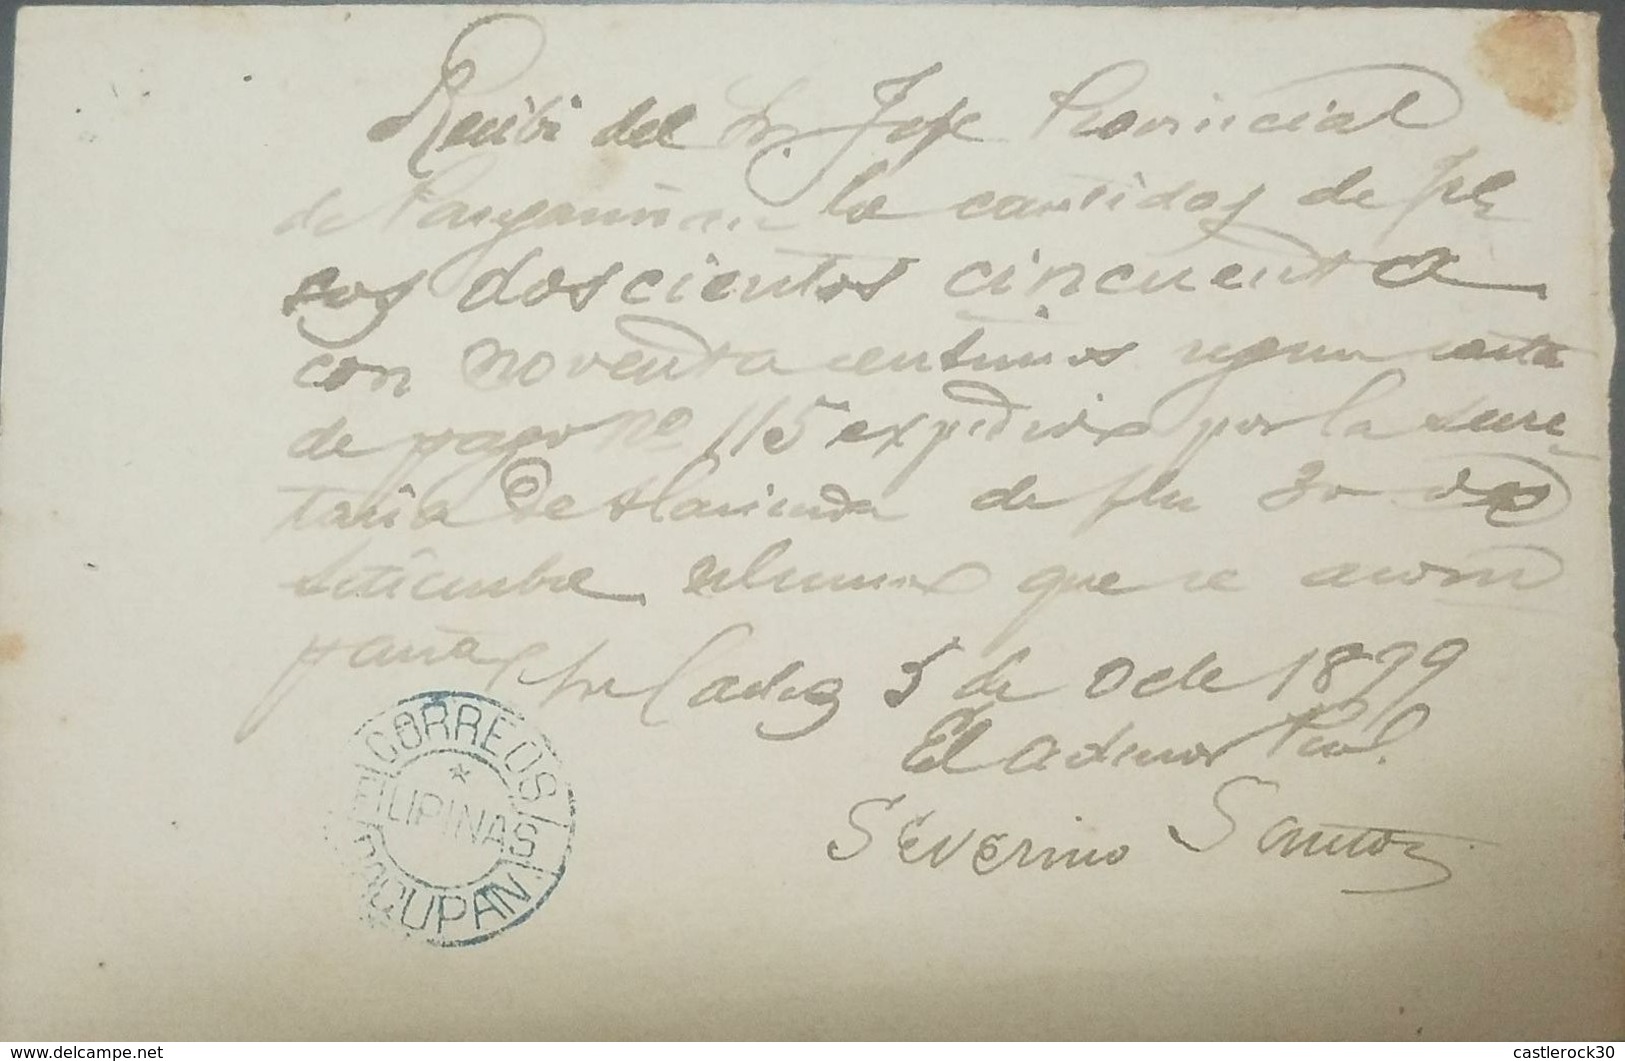 Recibi del Sr. Jefe Provincial
de Pangasinan la cantidad de pe
sos doscientos cincuenta
con noventa centimos segun carta
de pago nº 115 expedida por la Secre
taria de Hacienda de fha 30 de
Setiembre ultimo que se acom
paña
5 de Octe 1899
El Admor Pral.
Severino Santos
CORREOS
FILIPINAS
DAGUPAN
www.delcampe.net
castlerock30